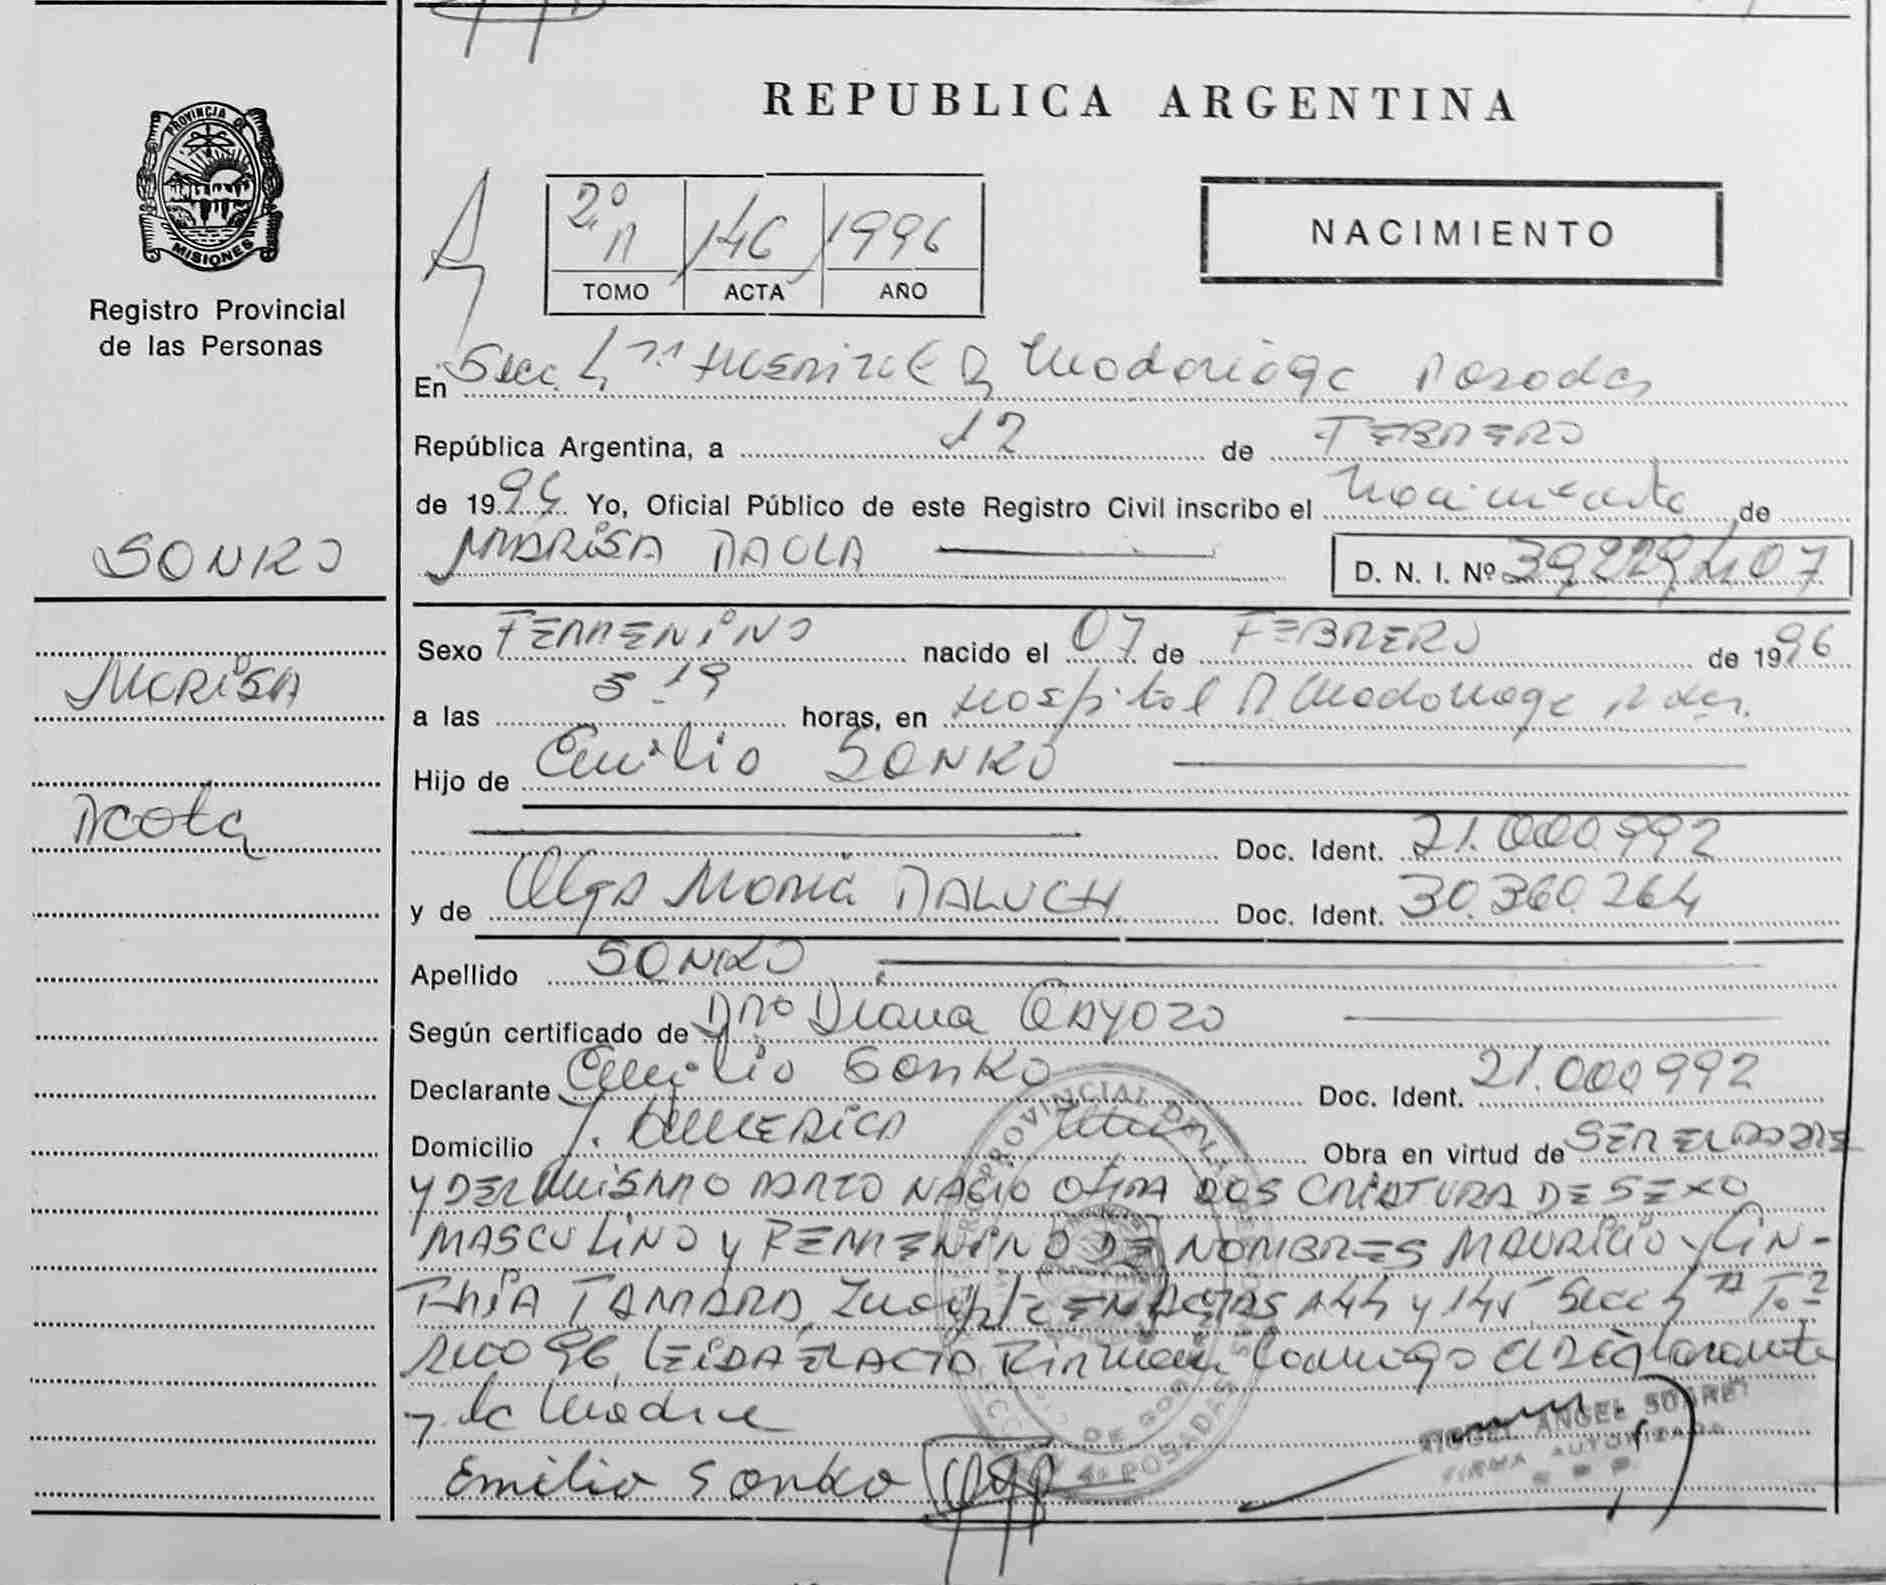 PROVINCIA DE
MISIONES
Registro Provincial
de las Personas
SONKO
Marisa
Paola
REPUBLICA ARGENTINA
2º 146 1996
TOMO ACTA AÑO
NACIMIENTO
En Secc. 4ta Madariaga Posadas
República Argentina, a 12 de FEBRERO
de 1996 Yo, Oficial Público de este Registro Civil inscribo el Nacimiento de
MARISA PAOLA D. N. I. Nº 39.229.407
Sexo FEMENINO nacido el 07 de FEBRERO de 1996
a las 5.19 horas, en Hospital R. Madariaga Pdas.
Hijo de Emilio SONKO
Doc. Ident. 21.000.992
y de Olga María PALUCH Doc. Ident. 30.360.264
Apellido SONKO
Según certificado de Dra Diana GAYOZO
Declarante Emilio SONKO Doc. Ident. 21.000.992
Domicilio J. AMERICA Obra en virtud de SER EL PADRE
Y DEL MISMO PARTO NACIO OTRA DOS CRIATURA DE SEXO
MASCULINO Y FEMENINO DE NOMBRES MAURICIO Y CIN-
THIA TAMARA, EN ACTAS 144 y 145 Secc 4ta To. 2
Año 96, LEIDA EL ACTA Firman Conmigo el Declarante
y la Madre
Emilio Sonko
MIGUEL ANGEL
FIRMA AUTORIZADA